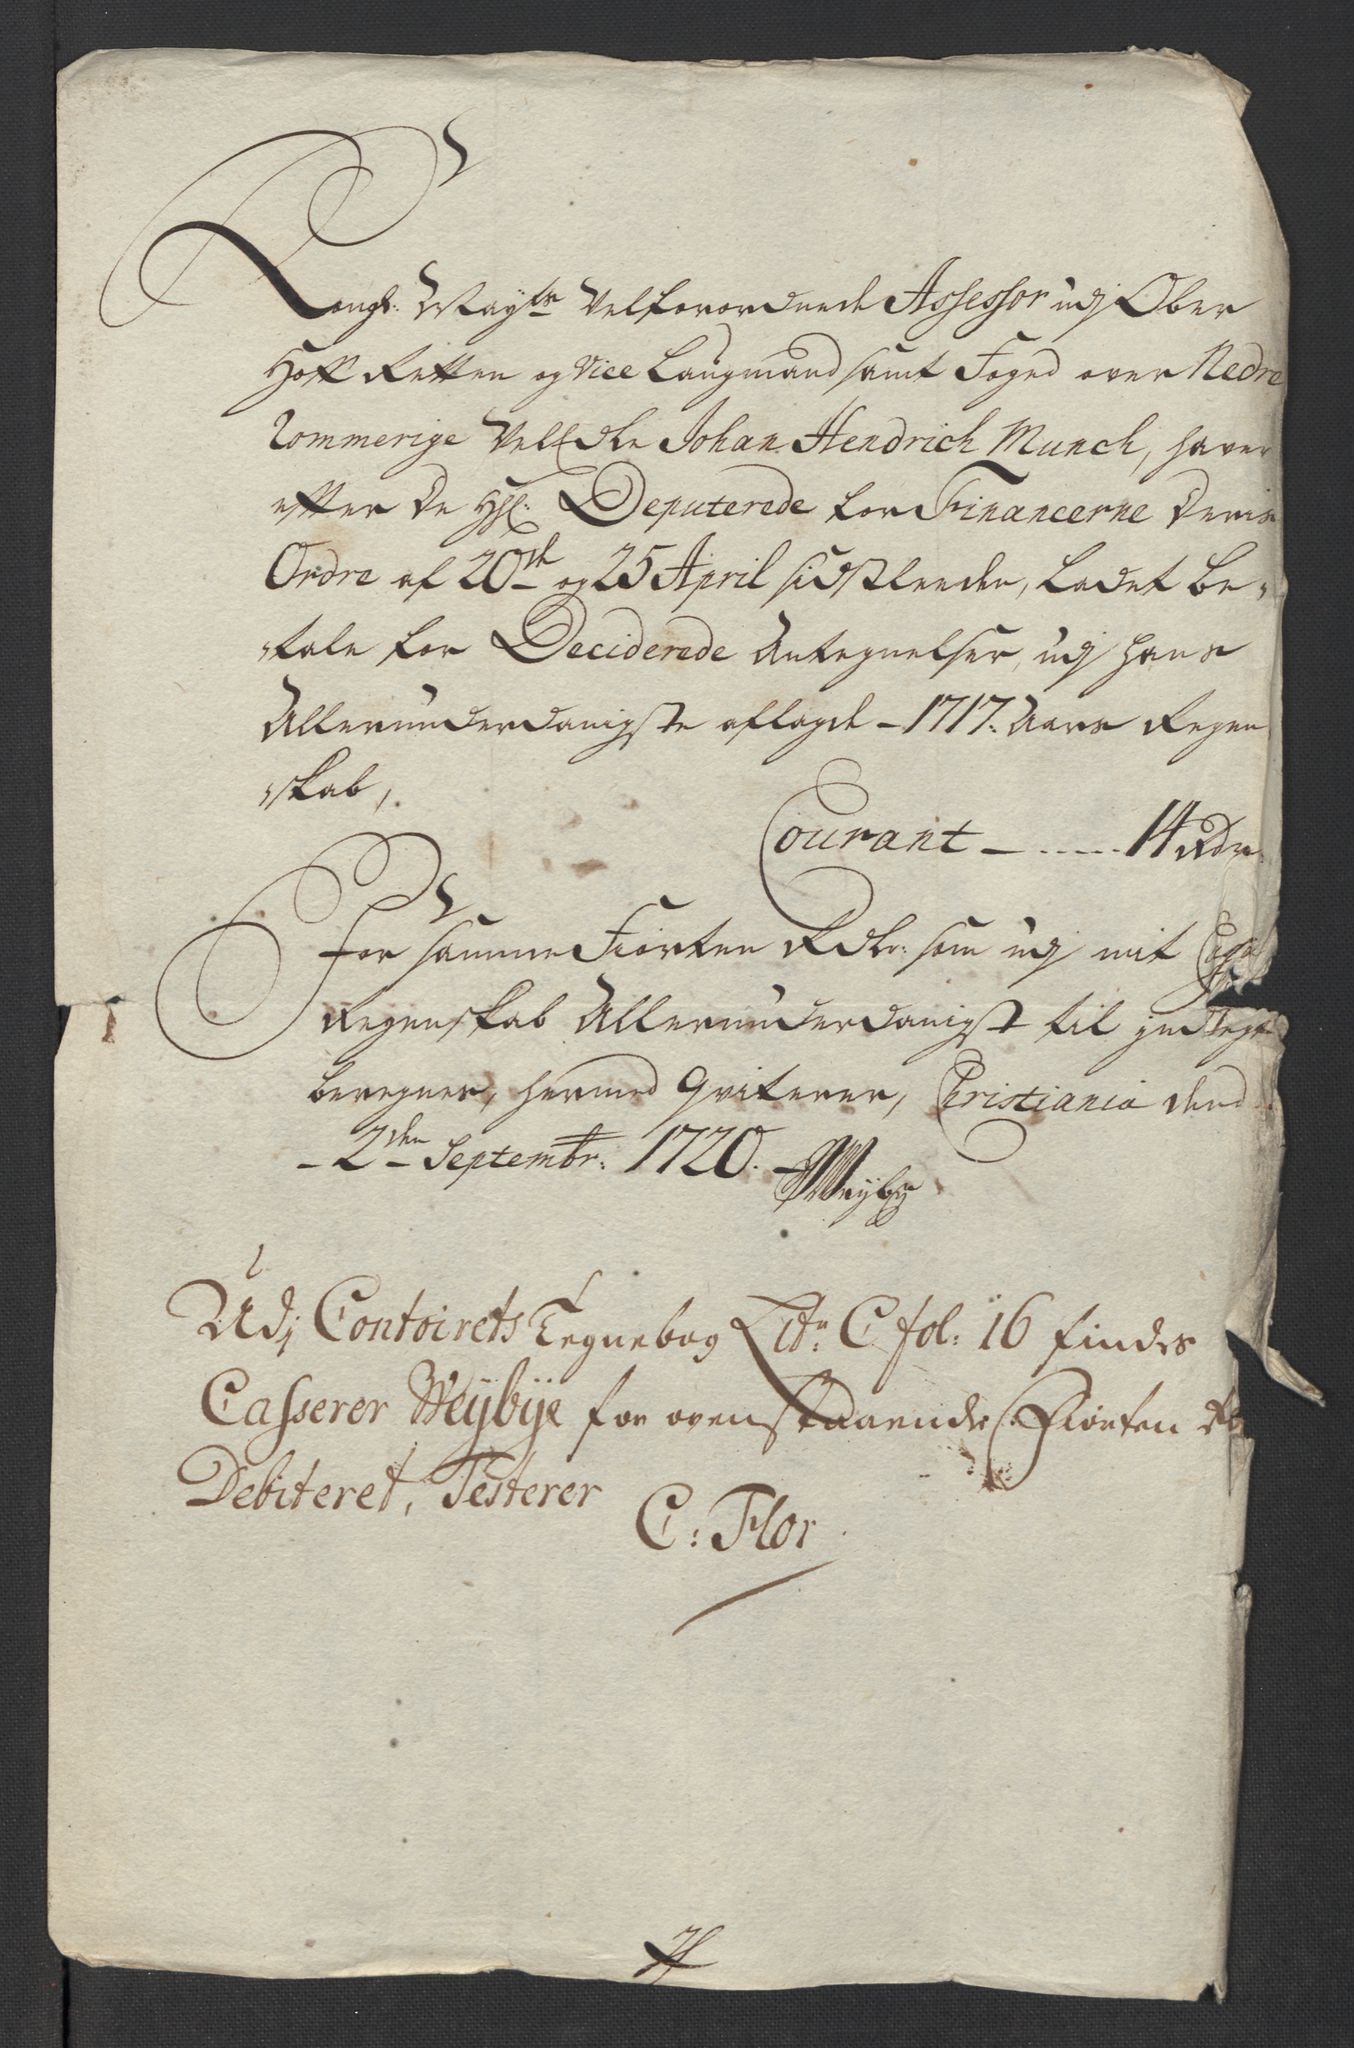 Kongl: Mayts Velforordnede Assessor udj Ober
Hoff Retten og Vice Laugmand samt Foged over Nedre
Rommerige VelEdle Johan Hendrich Munch, haver
efter De Hgl: Deputerede for Financerne Deris
Ordre af 20de og 25 April sidstleeden, ladet be-
tale for Deciderede Antegnelser, udj hans
Allerunderdanigste aflagde - 1717. Aars Regen
skab,
Courant - ..... 14 Rdr
For samme Fiorten Rdlr: som udj mit Cassa
Regenskab Allerunderdanigst til indtegt
beregner, hermed Qviterer, Christiania dend
- 2den Septembr: 1720.
Weyby
Udj Contoirets Tegnebog Litr: C fol: 16 findes
Casserer Weybye for ovenstaaende Fiorten Rd
Debiteret, Testerer
C: Flor